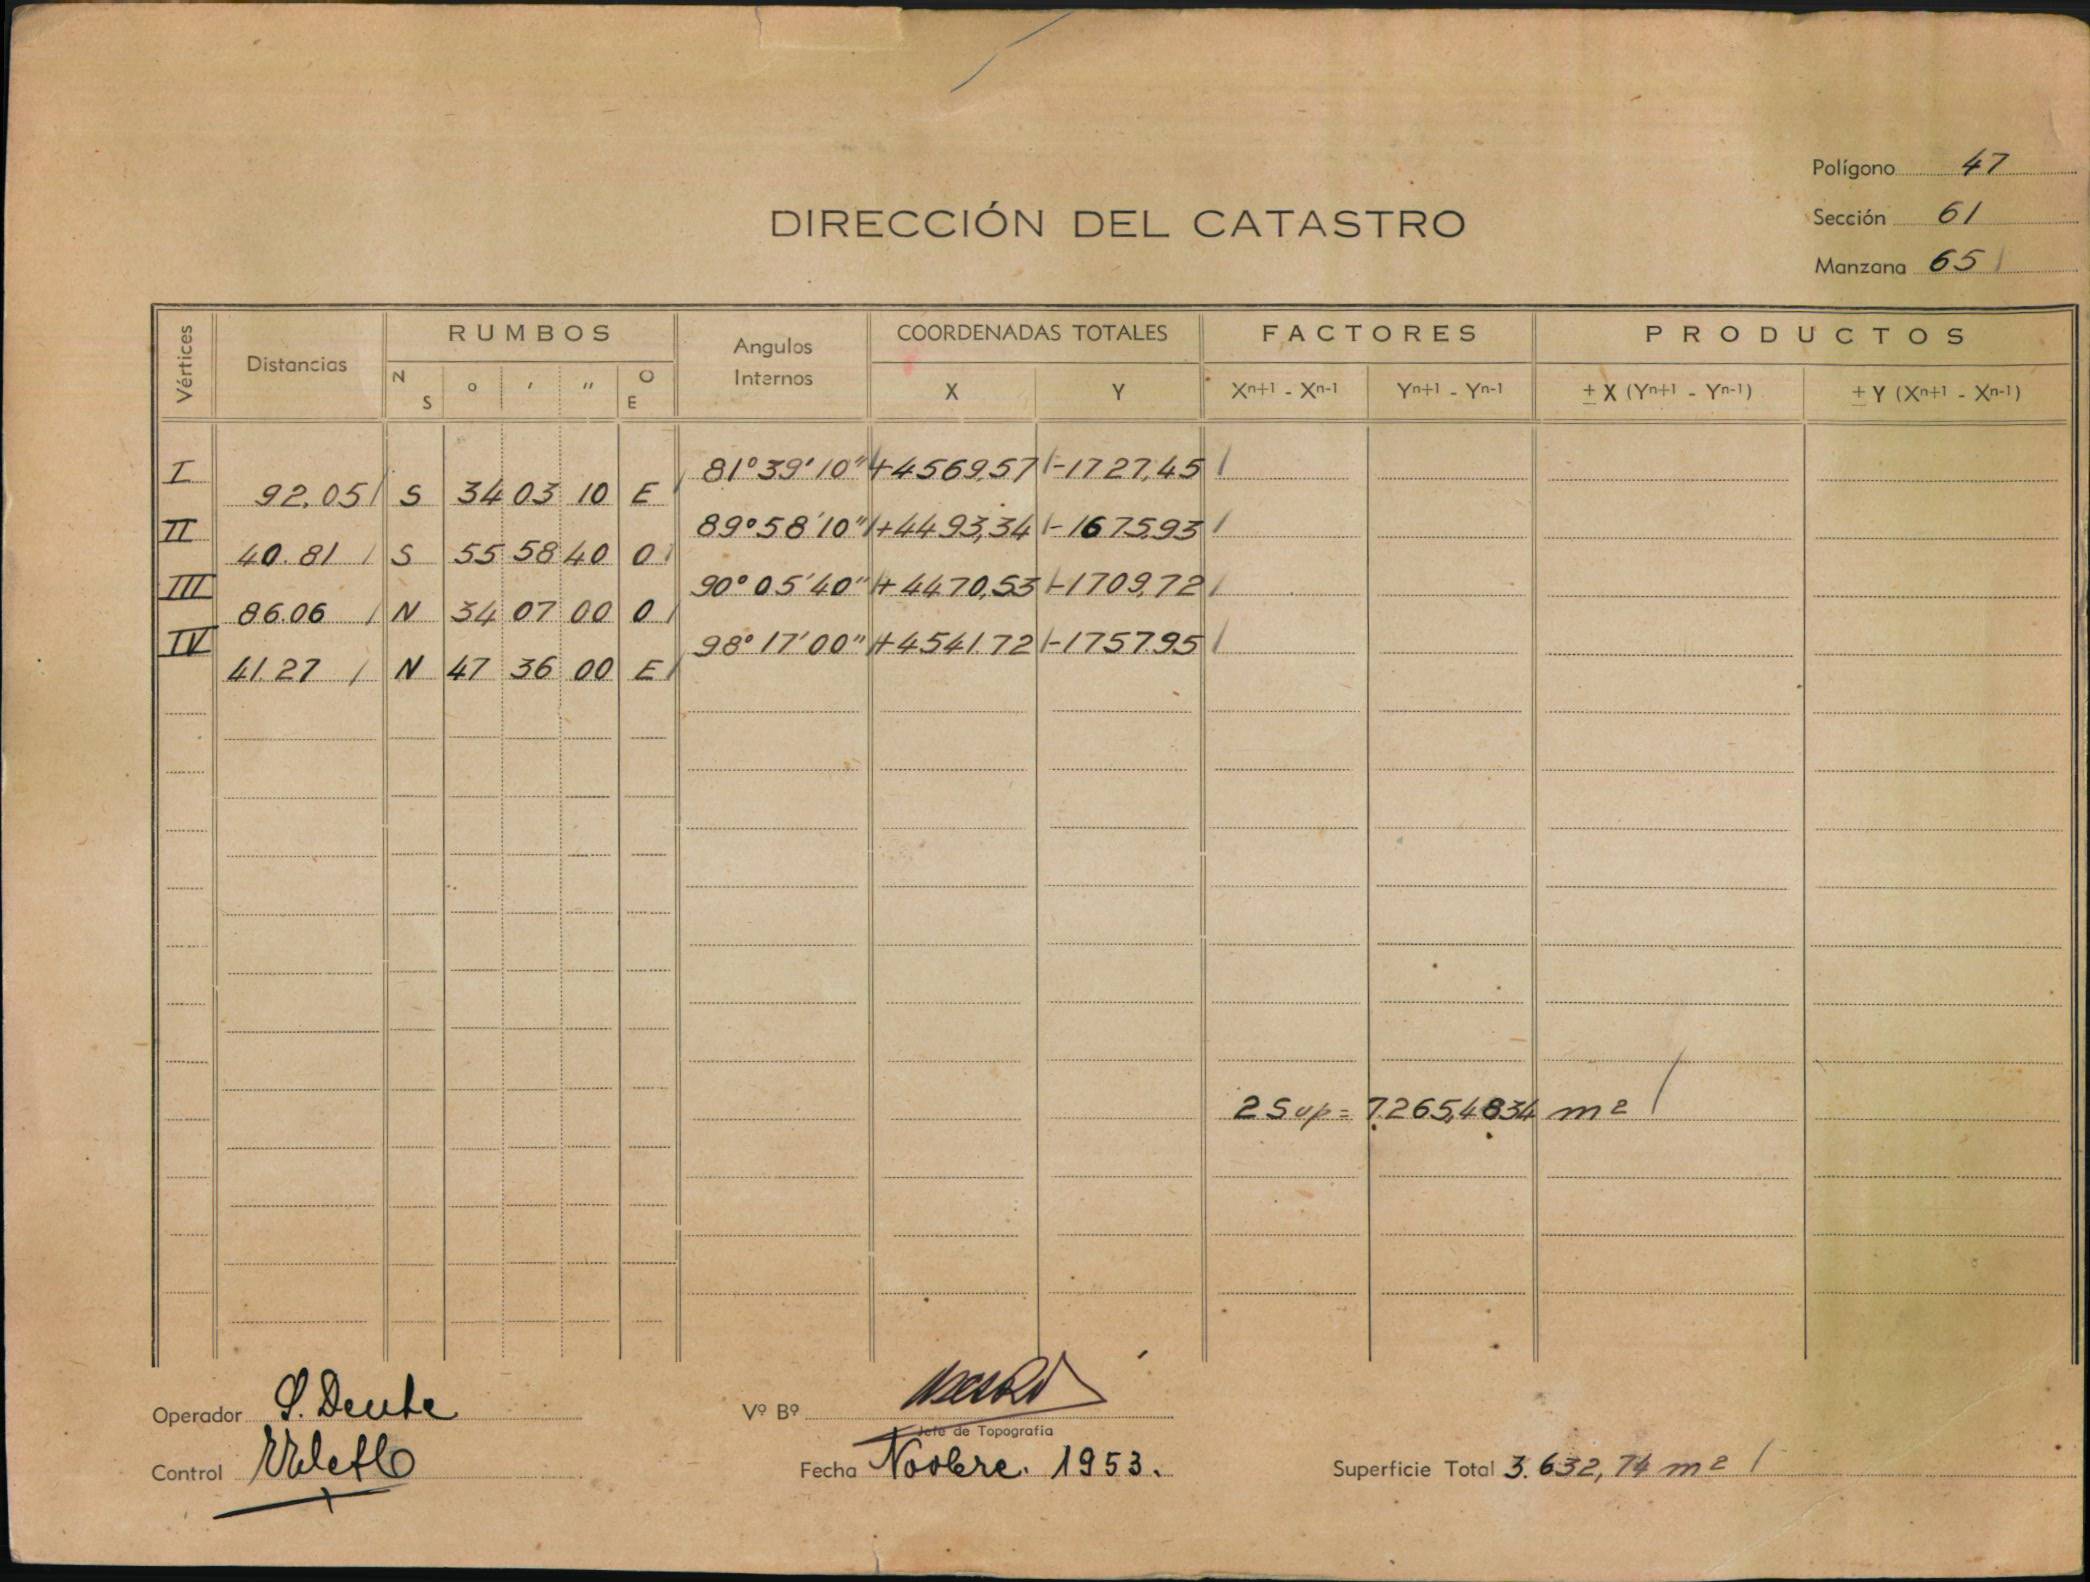 Polígono 47
DIRECCIÓN DEL CATASTRO
Sección 61
Manzana 65
Vértices Distancias RUMBOS Angulos Internos COORDENADAS TOTALES FACTORES PRODUCTOS
N S ° ' " O E X Y Xn+1 - Xn-1 Yn+1 - Yn-1 ± X (Yn+1 - Yn-1) ± Y (Xn+1 - Xn-1)
I 81°39'10" +4569,57 -1727,45
92.05 S 34 03 10 E
II 89°58'10" +4493,34 -1675,93
40.81 S 55 58 40 O
III 90°05'40" +4470,53 -1709,72
86.06 N 34 07 00 O
IV 98°17'00" +4541.72 -1757.95
41.27 N 47 36 00 E
2 Sup = 7.265,4834 m2
Operador S. Deute
Vº Bº
Jefe de Topografía
Control
Fecha Novbre. 1953.
Superficie Total 3.632,74 m2